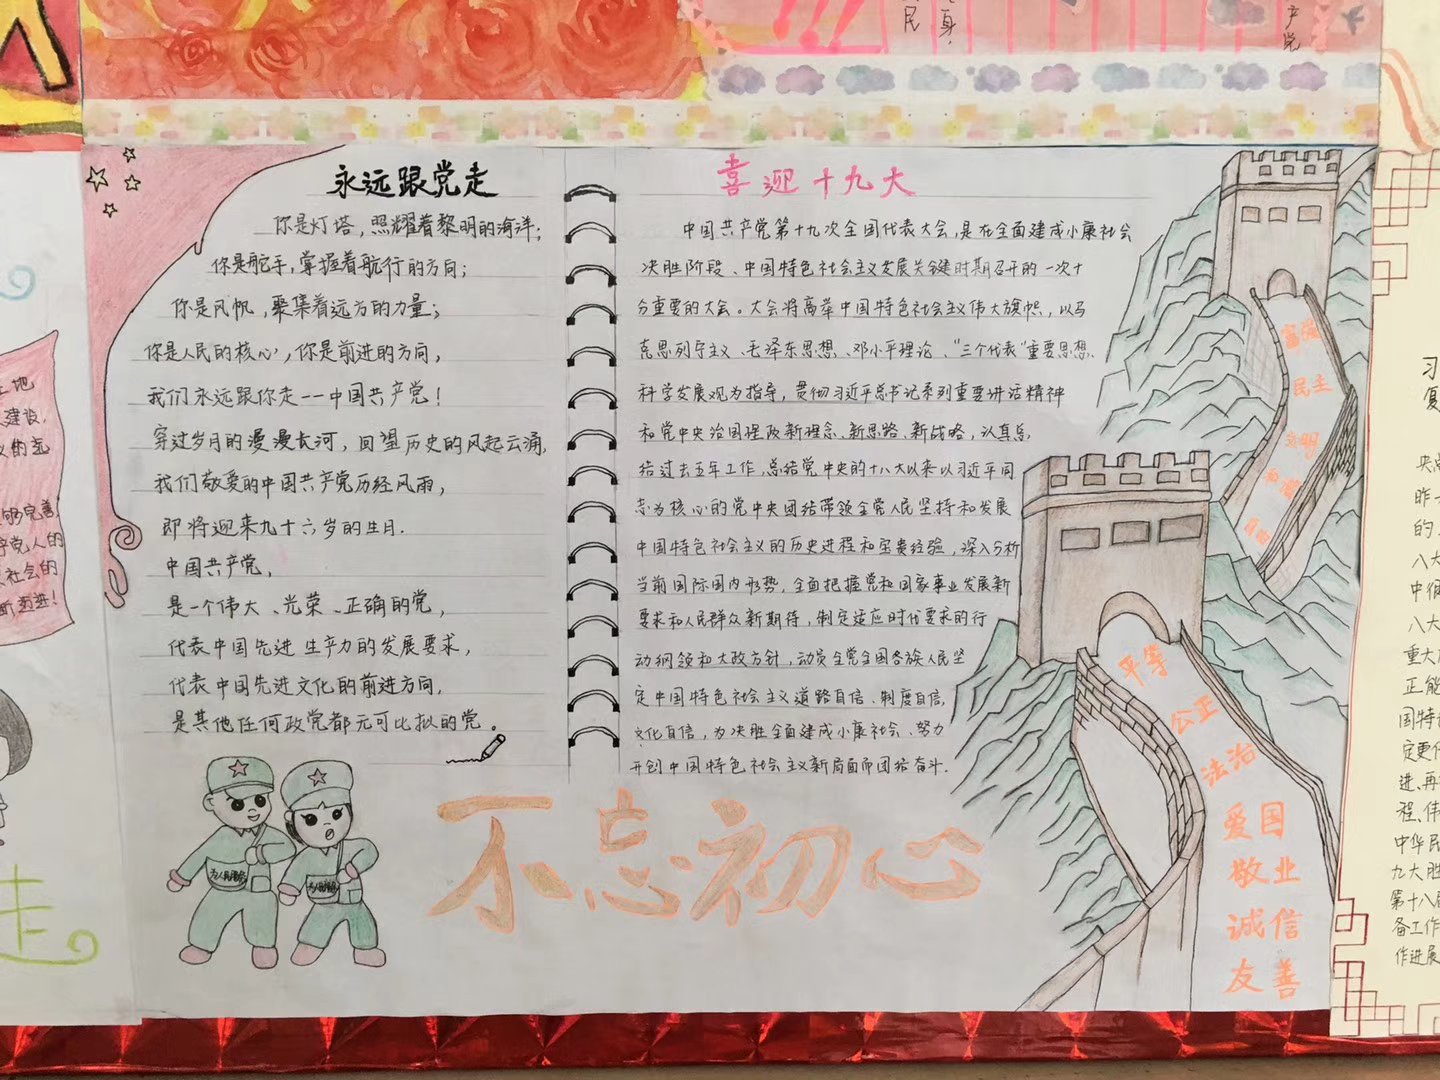 民
身
产党
永远跟党走
你是灯塔，照耀着黎明的海洋；
你是舵手，掌握着航行的方向；
你是风帆，聚集着远方的力量；
你是人民的核心，你是前进的方向，
我们永远跟你走——中国共产党！
穿过岁月的漫漫长河，回望历史的风起云涌，
我们敬爱的中国共产党历经风雨，
即将迎来九十六岁的生日．
中国共产党，
是一个伟大、光荣、正确的党，
代表中国先进生产力的发展要求，
代表中国先进文化的前进方向，
是其他任何政党都无可比拟的党。
喜迎十九大
中国共产党第十九次全国代表大会，是在全面建成小康社会
决胜阶段、中国特色社会主义发展关键时期召开的一次十
分重要的大会。大会将高举中国特色社会主义伟大旗帜，以马
克思列宁主义、毛泽东思想、邓小平理论、“三个代表”重要思想、
科学发展观为指导，贯彻习近平总书记系列重要讲话精神
和党中央治国理政新理念、新思路、新战略，认真总
结过去五年工作，总结党中央的十八大以来以习近平同
志为核心的党中央团结带领全党人民坚持和发展
中国特色社会主义的历史进程和宝贵经验，深入分析
当前国际国内形势，全面把握党和国家事业发展新
要求和人民群众新期待，制定适应时代要求的行
动纲领和大政方针，动员全党全国各族人民坚
定中国特色社会主义道路自信、制度自信，
文化自信，为决胜全面建成小康社会、努力
开创中国特色社会主义新局面而团结奋斗．
富强
民主
文明
和谐
自由
平等
公正
法治
爱国
敬业
诚信
友善
为人民服务
为人民服务
不忘初心
地
建设，
够完善
党人的
社会的
断迈进！
走
习
复
央总
昨
的
八大
中
八大
重大
正能
国特
定更
进、再
程、伟
中华民
九大胜
第十八届
备工作
作进展